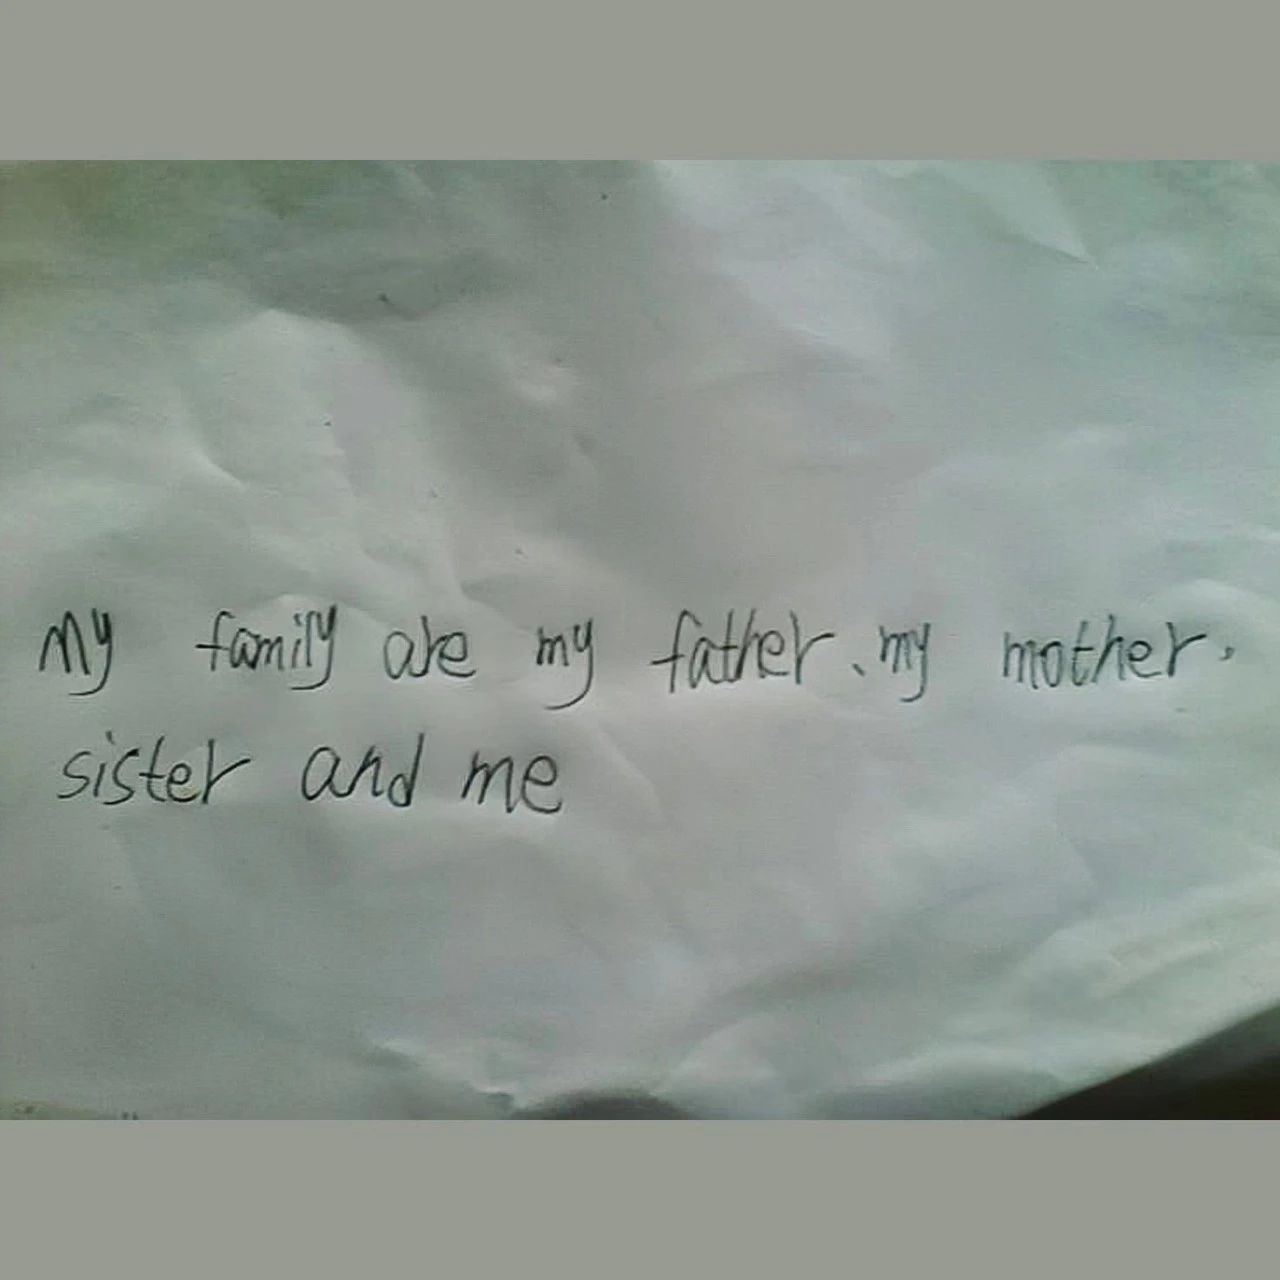 My family are my father、my mother,
sister and me